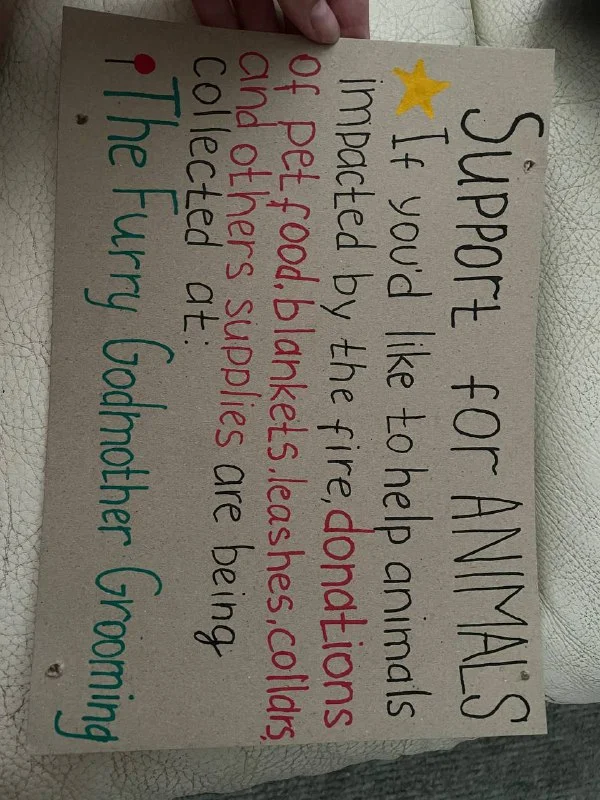 Support for ANIMALS
If you'd like to help animals
impacted by the fire, donations
of pet food, blankets, leashes, collars,
and others supplies are being
collected at:
The Furry Godmother Grooming